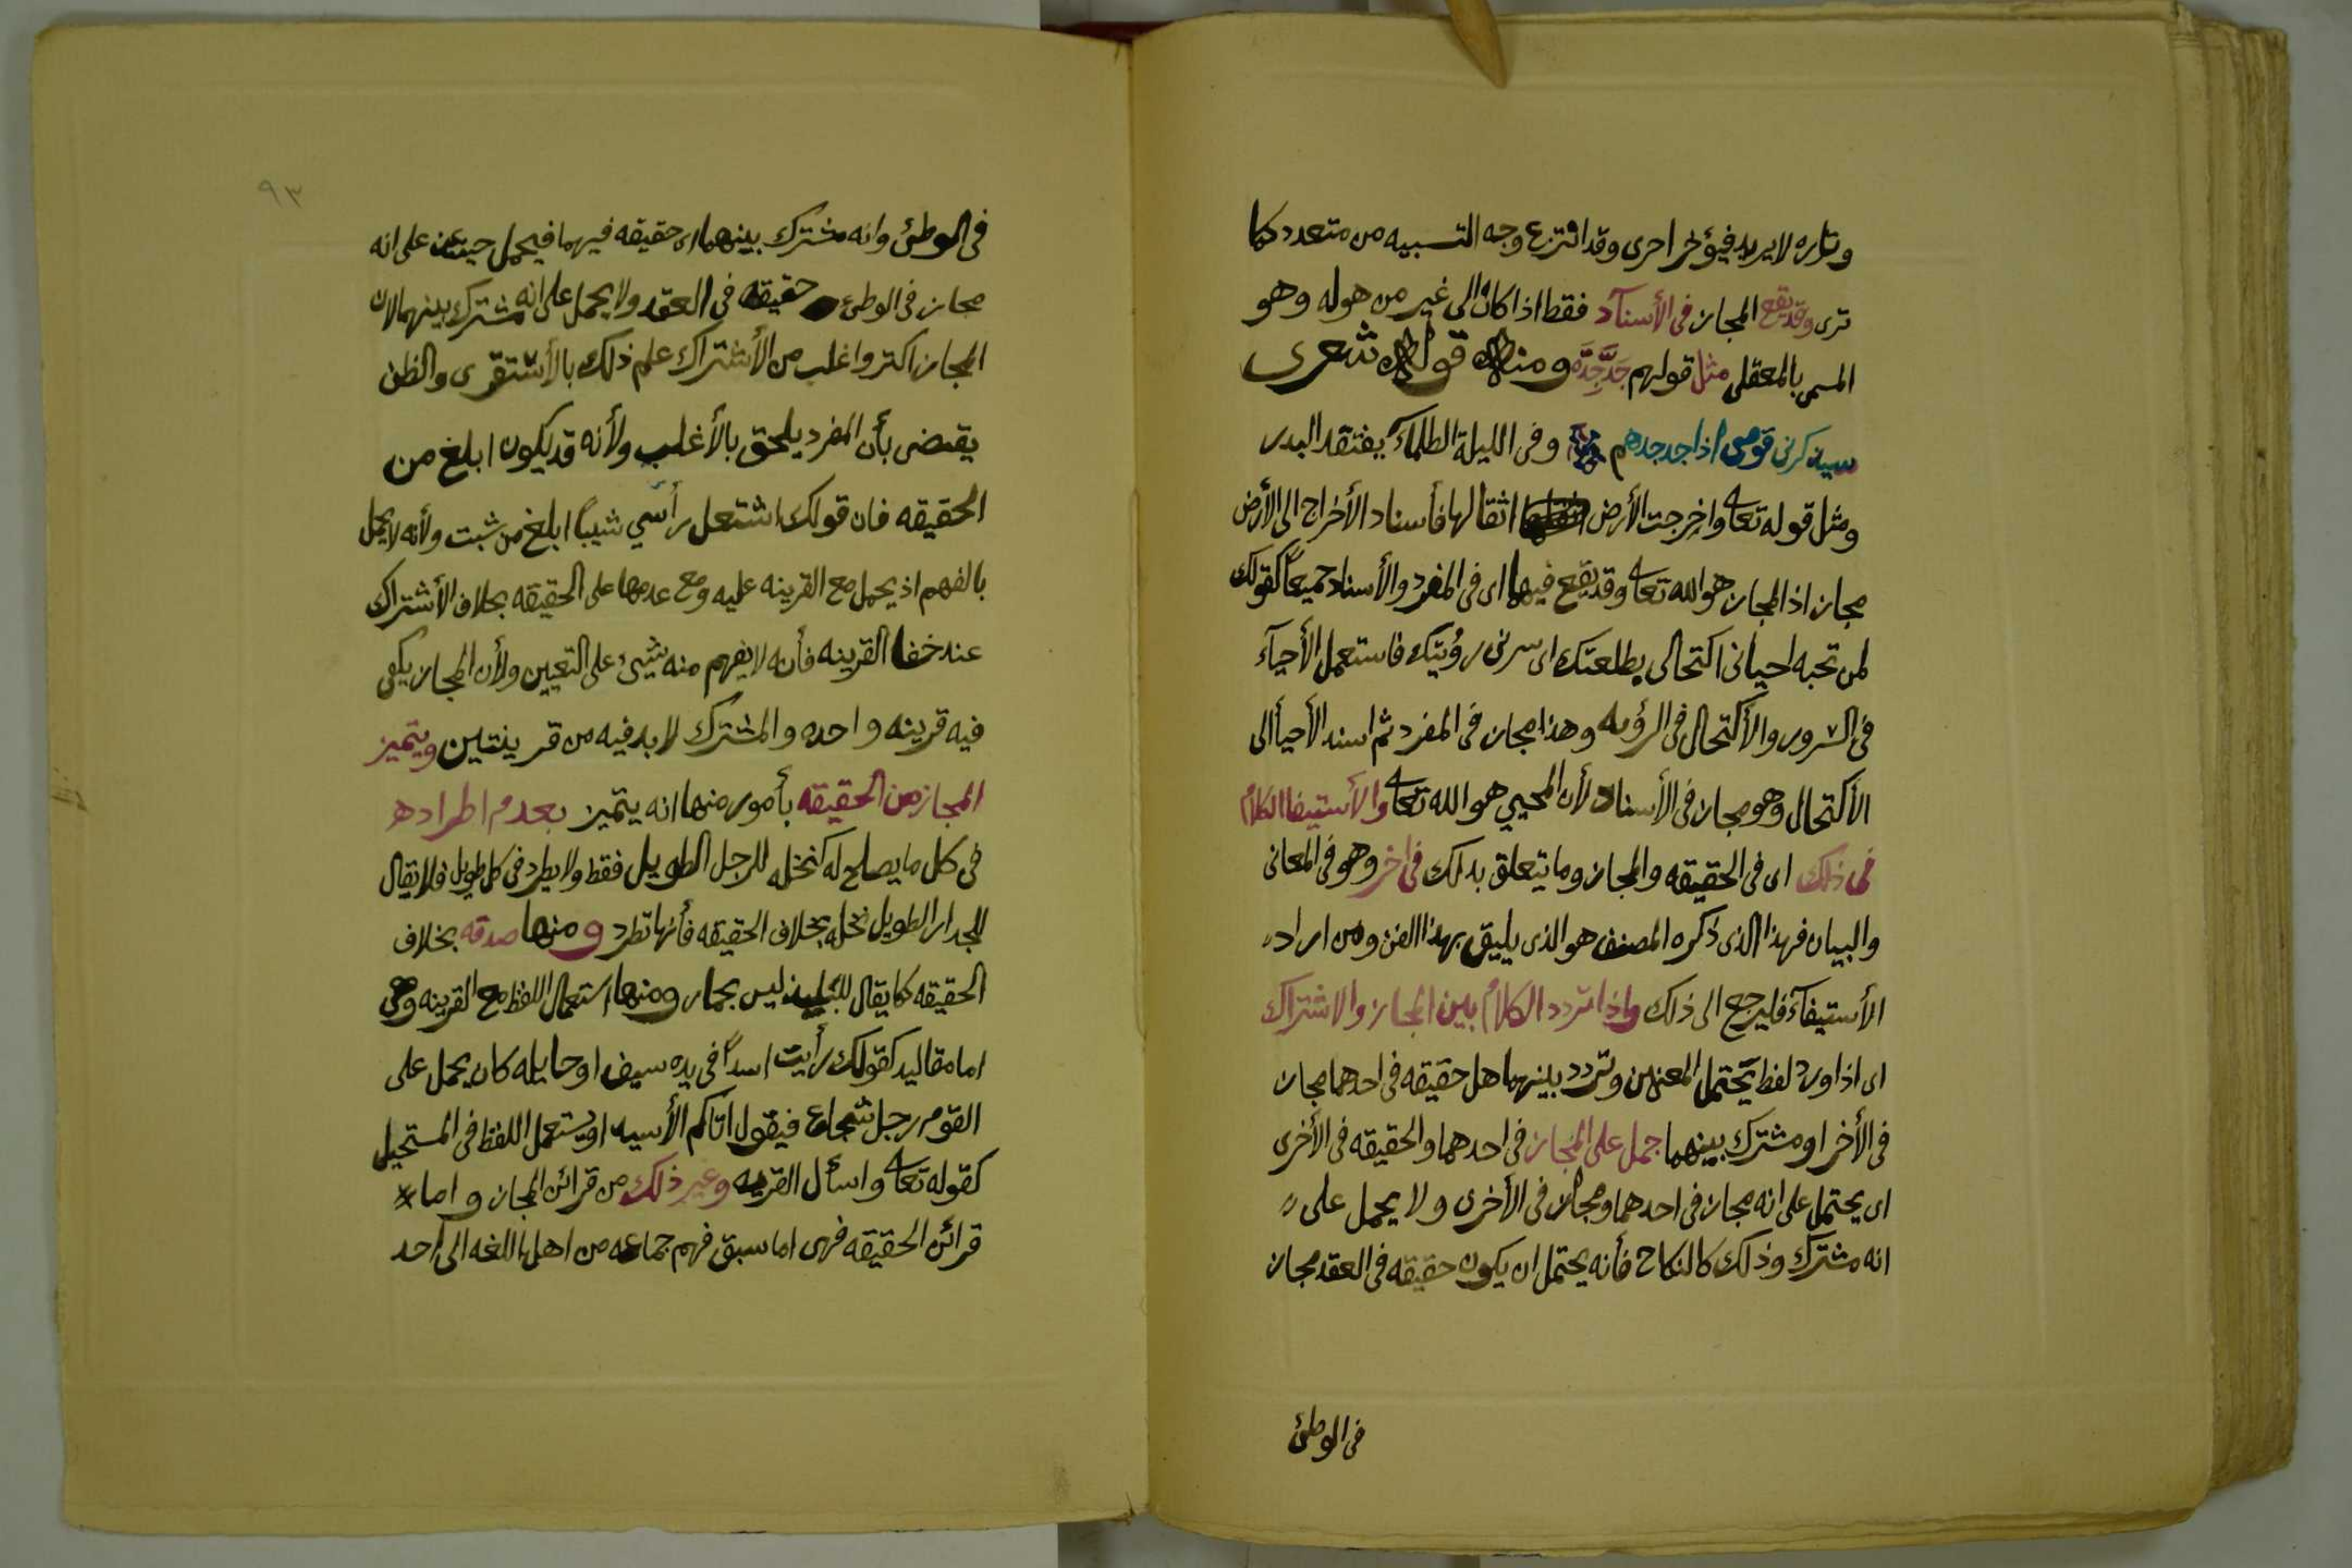 وتاره لا يريد فيؤخر احرى وقد انتزع وجه التسبيه من متعدد كما
ترى وقد يقع المجاز فى الأسنآد فقط اذا كان الى غير من هوله وهو
المسمى بالمعقلى مثل قولهم جَدَّ جِدَّه ومنه قوله شعرى
سيذكرنى قومى اذا جد جدهم وفى الليلة الظلمآء يفتقد البدر
ومثل قوله تعا واخرجت الأرض اثقالها فأسناد الأخراج الى الأرض
مجاز اذ المجاز هو الله تعا وقد يقع فيهما اى فى المفرد والأسناد جميعاً كقولك
لمن تحبه احيانى اكتحالى بطلعتك اى سرنى رؤيتك فاستعمل الأحيآء
فى السرور والأكتحال فى الرؤيه وهذا مجاز فى المفرد ثم اسند الأحيأ الى
الأكتحال وهو مجاز فى الأسناد لأن المحيي هو الله تعا والأستيفا الكلام
فى ذلك اى فى الحقيقه والمجاز وما يتعلق بدلك فى اخر وهو فى المعانى
والبيان فهذا الذى ذكره المصنف هو الذى يليق بهذا الفن ومن اراد
الأستيفآء فليرجع الى ذلك واذا تردد الكلام بين المجاز والاشتراك
اى اذا ورد لفظ يحتمل المعنيين وتردد بينهما هل حقيقه فى احدهما مجاز
فى الأخر او مشترك بينهما حمل على المجاز فى احدهما والحقيقه فى الأخرى
اى يحتمل على انه مجاز فى احدهما ومجاز فى الأخرى ولا يحمل على
انه مشترك وذلك كالنكاح فأنه يحتمل ان يكون حقيقه فى العقد مجاز
فى الوطئ
٩٣
فى الوطئ وانه مشترك بينهما اى حقيقه فيهما فيحمل حينئذ على انه
مجاز فى الوطئ حقيقه فى العقد ولا يحمل على انه مشترك بينهما لان
المجاز اكثر واغلب من الأشتراك علم ذلك بالأشتقرى والظن
يقتضى بأن المفرد يلحق بالأغلب ولأنه قد يكون ابلغ من
الحقيقه فان قولك اشتعل رأسي شيباً ابلغ من شبت ولأنه لا يخل
بالفهم اذ يحمل مع القرينه عليه ومع عدمها على الحقيقه بخلاف الأشتراك
عند خفا القرينه فأنه لا يفهم منه شيئ على التعيين ولأن المجاز يكفى
فيه قرينه واحده والمشترك لا بد فيه من قرينتين ويتميز
المجاز من الحقيقه بأمور منها انه يتميز بعدم اطراده
فى كل ما يصلح له كنخله للرجل الطويل فقط ولا يطرد فى كل طويل فلا يقال
للجدار الطويل نخله بخلاف الحقيقه فأنها تطرد ومنها صدقه بخلاف
الحقيقه كما يقال للبليد ليس بحمار ومنها استعمال اللفظ مع القرينه وهى
اما مقاليه كقولك رأيت اسداً فى يده سيف او حايله كان يحمل على
القوم رجل شجاع فيقول اتاكم الأسد او يستعمل اللفظ فى المستحيل
كقوله تعا واسأل القريه وغير ذلك من قرائن المجاز واما
قرائن الحقيقه فهى اما سبق فهم جماعه من اهل اللغه الى احد